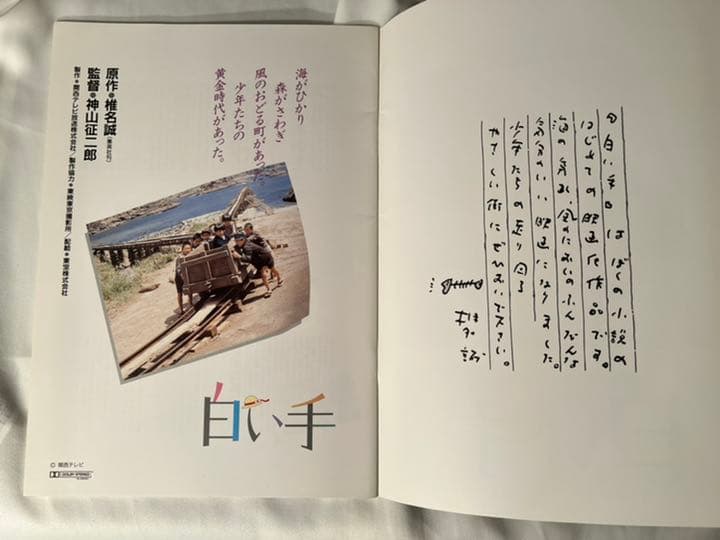 海がひかり
森がさわぎ
風のおどる町があった。
少年たちの
黄金時代があった。
原作●椎名誠(集英社刊)
監督●神山征二郎
製作●関西テレビ放送株式会社/製作協力●東映東京撮影所/配給●東宝株式会社
白い手
© 関西テレビ
DOLBY STEREO
『白い手』はぼくの小説の
はじめての映画化作品です。
海の 風のにおいのふんだんな
気分のいい映画になりました。
少年たちの走り回る
やさしい街にぜひおいで下さい。
椎名誠